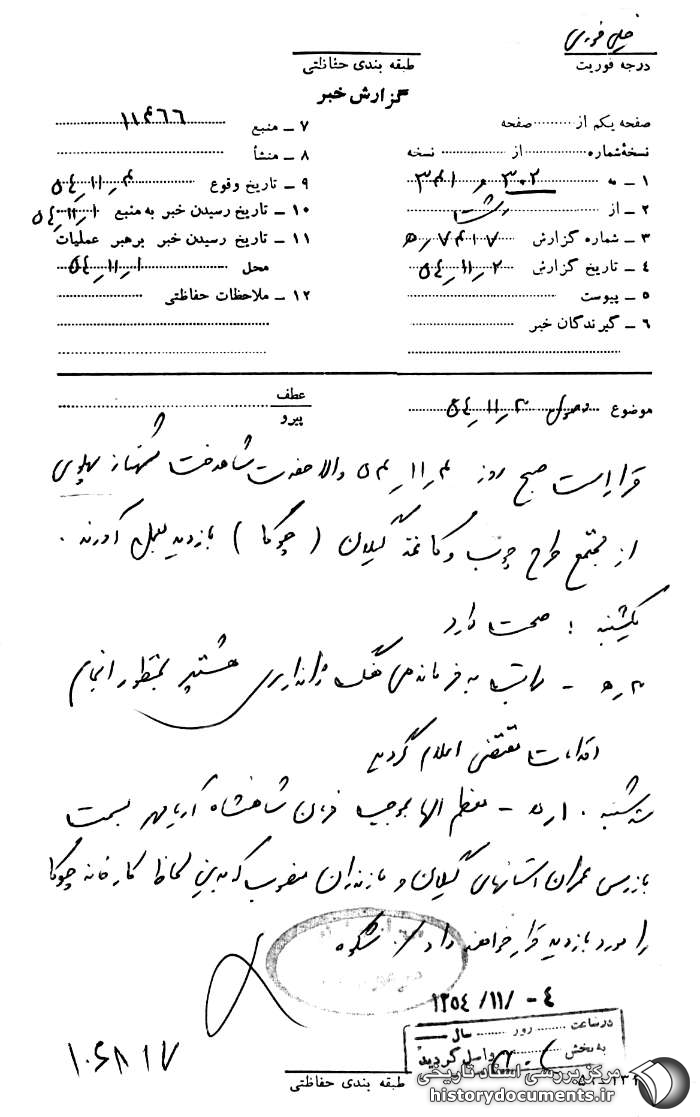 خیلی فوری
درجه فوریت
طبقه بندی حفاظتی
گزارش خبر
صفحه یکم از ........... صفحه
نسخهٔ شماره ........... از ........... نسخه
۱ ـ به ۳۰۲ و ۳۴۱
۲ ـ از رشت
۳ ـ شماره گزارش ۷۴۱۷/ه
۴ ـ تاریخ گزارش ۵۴/۱۱/۲
۵ ـ پیوست
۶ ـ گیرندگان خبر
۷ ـ منبع ۱۱۴۶۶
۸ ـ منشأ
۹ ـ تاریخ وقوع ۵٤/۱۱/۴
۱۰ ـ تاریخ رسیدن خبر به منبع ۵٤/۱۱/۱
۱۱ ـ تاریخ رسیدن خبر برهبر عملیات
محل ۵٤/۱۱/۱
۱۲ ـ ملاحظات حفاظتی
موضوع
عطف
پیرو
قرار است صبح روز ۵۴/۱۱/۴ والا حضرت شاهدخت شهناز پهلوی
از مجتمع طرح چوب و کاغذ گیلان ( چوکا ) بازدید بعمل آورند .
یکشنبه : صحت دارد
مراتب به فرماندهی هنگ ژاندارمری هشتپر بمنظور انجام
اقدامات مقتضی اعلام گردید
سه شنبه ـ معظم الها بموجب فرمان شاهنشاه آریامهر بسمت
بازرس عمران استانهای گیلان و مازندران منصوب که بدین لحاظ کارخانه چوکا
را مورد بازدید قرار خواهند داد . شکوه
۱۳۵۴/۱۱/-۴
در ساعت ........ روز ........ سال
به بخش واصل گردید
۱۰۶۸۱۷
طبقه بندی حفاظتی
مرکز بررسی اسناد تاریخی
historydocuments.ir